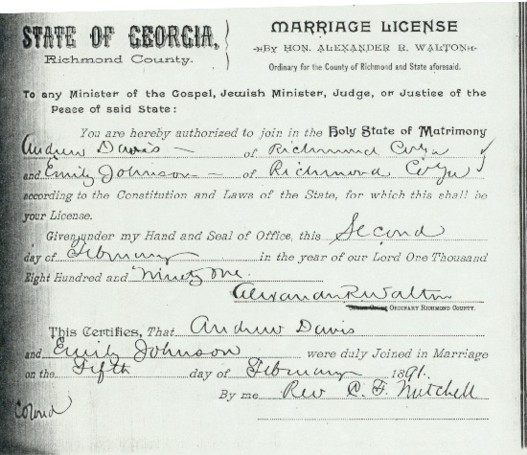 STATE OF GEORGIA,
Richmond County.
MARRIAGE LICENSE
BY HON. ALEXANDER R. WALTON
Ordinary for the County of Richmond and State aforesaid.
To any Minister of the Gospel, Jewish Minister, Judge, or Justice of the
Peace of said State:
You are hereby authorized to join in the Holy State of Matrimony
Andrew Davis of Richmond
and Emily Johnson of Richmond
according to the Constitution and Laws of the State, for which this shall be
your License.
Given under my Hand and Seal of Office, this Second
day of February in the year of our Lord One Thousand
Eight Hundred and Ninety One.
Alexander R. Walton
ORDINARY RICHMOND COUNTY.
This Certifies, That Andrew Davis
and Emily Johnson were duly Joined in Marriage
on the Fifth day of February 1891.
By me Rev C. F. Mitchell
Colored